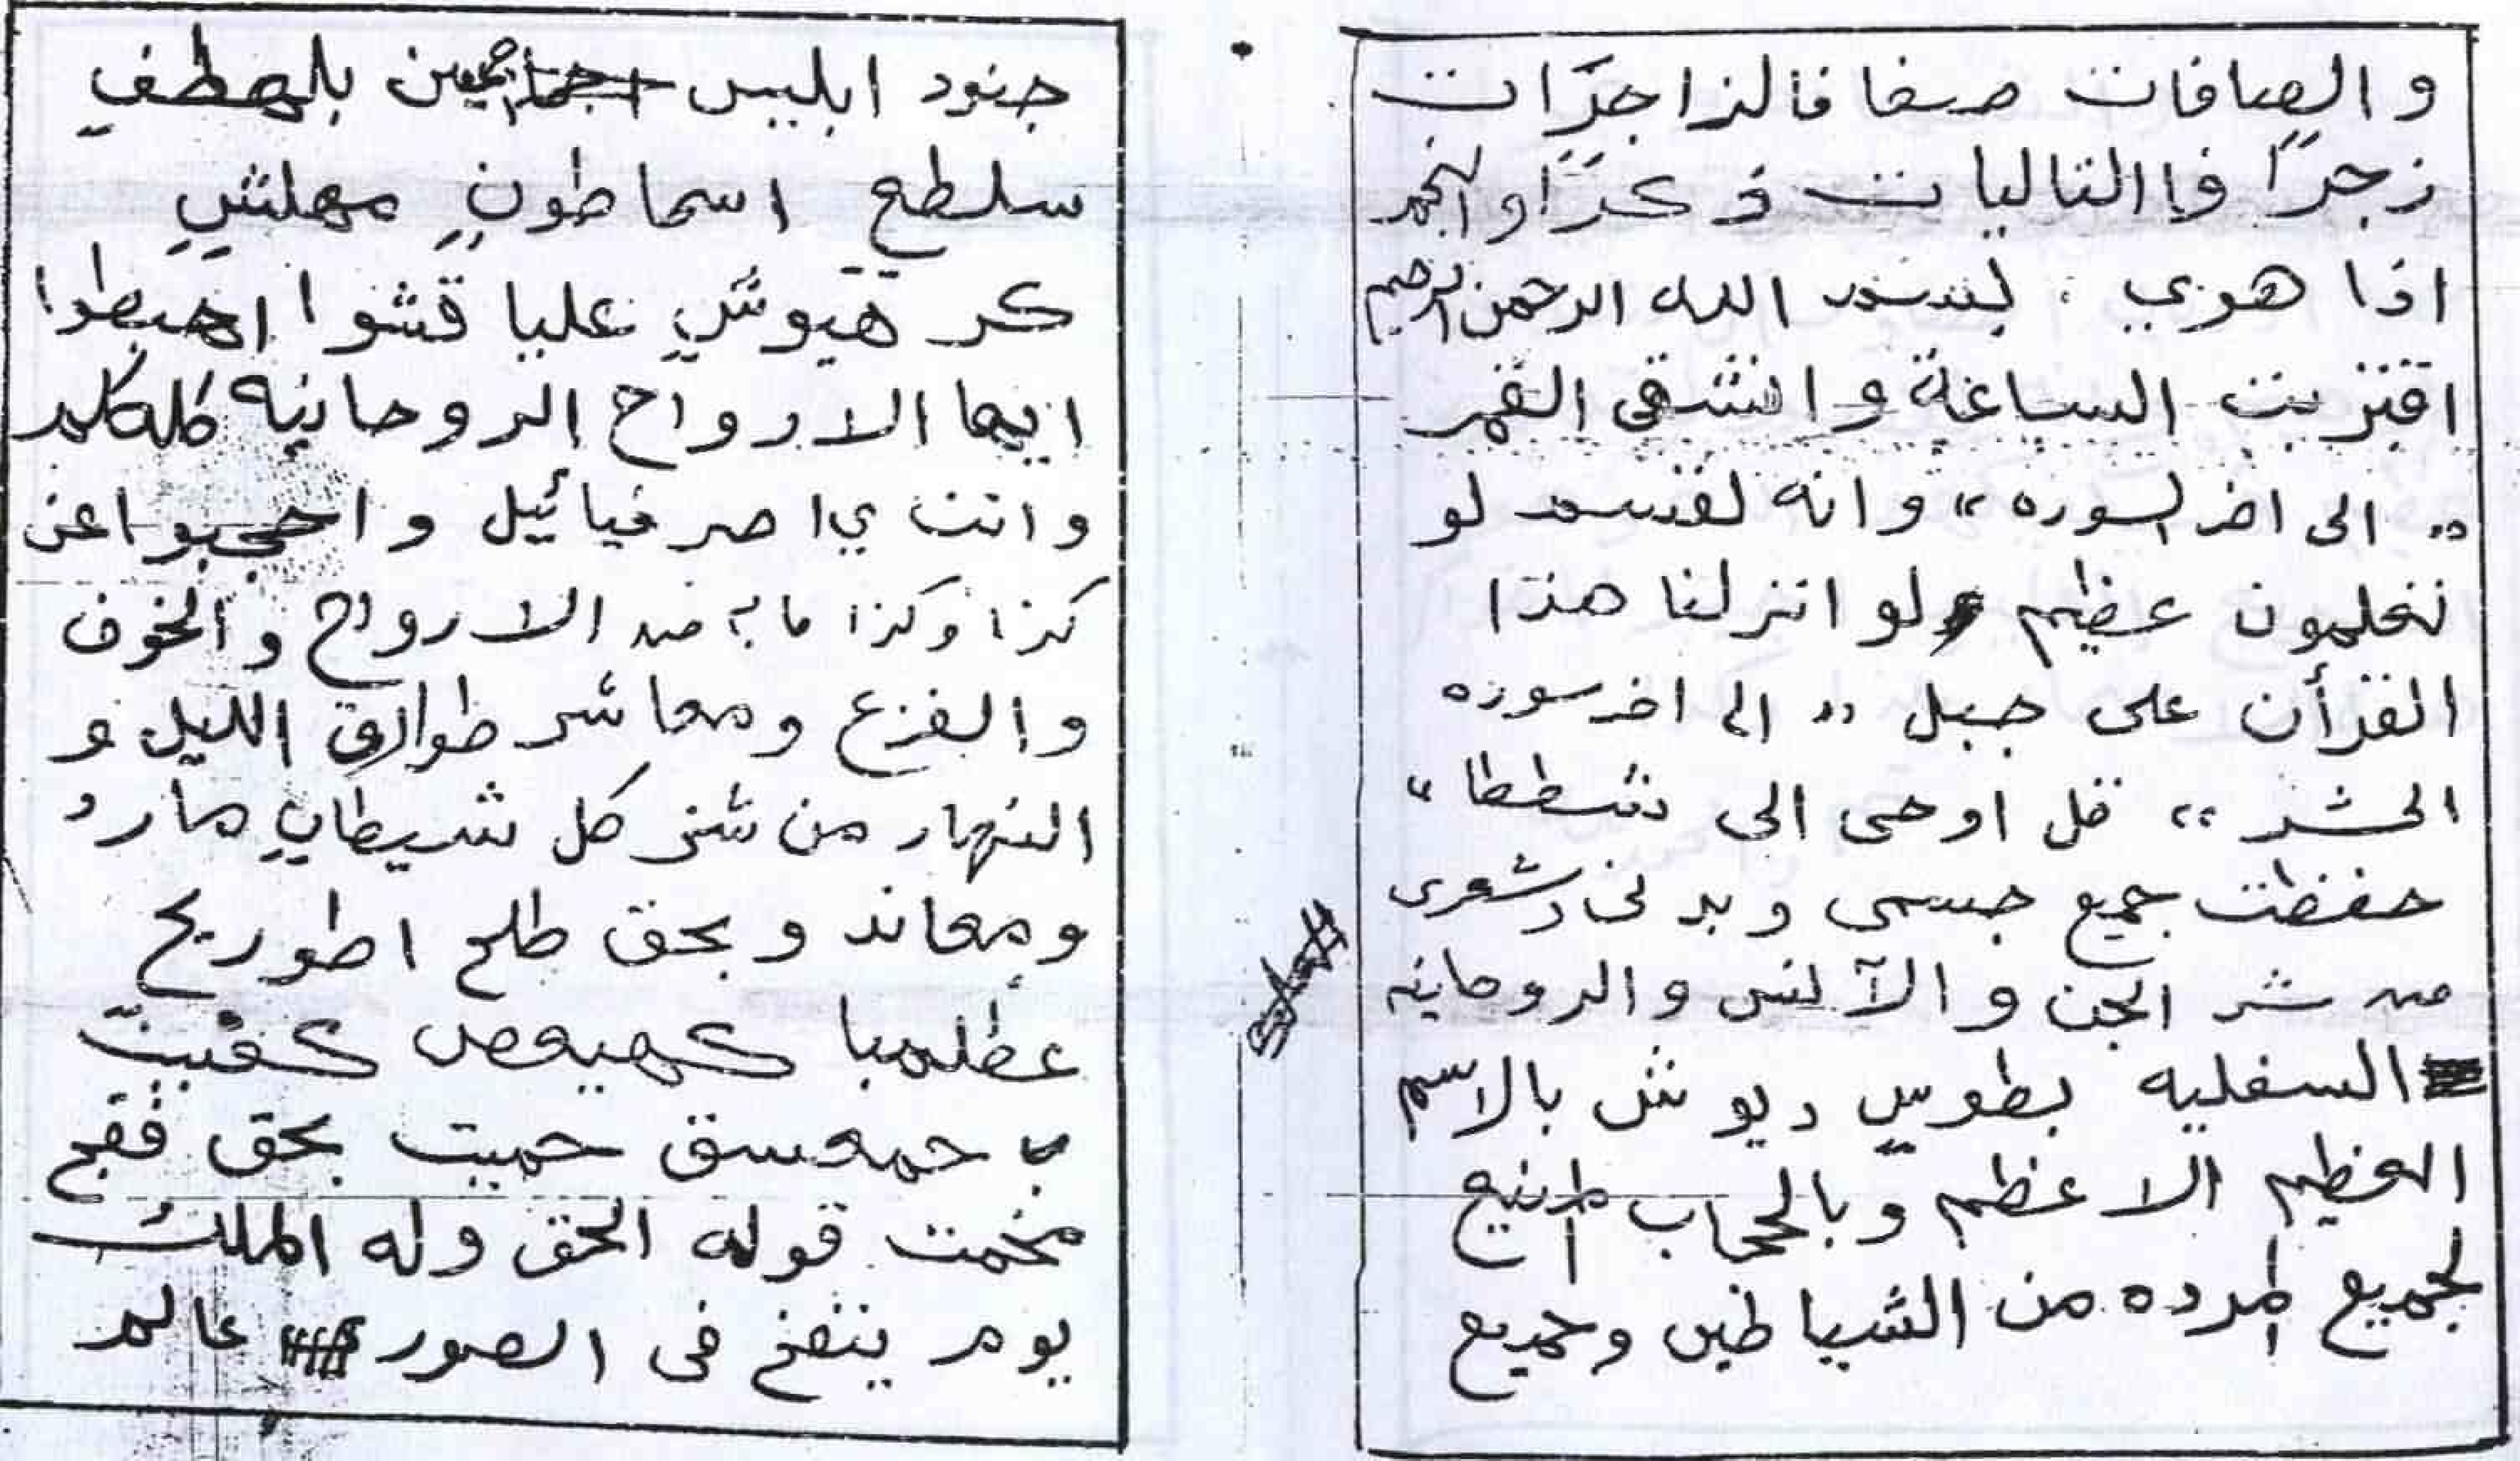 والصافات صفا فالزاجرات
زجرًا فاالتاليات ذكرًا والنجم
اذا هوي . بسم الله الرحمن الرحيم
اقتربت الساعة وانشقى القمر
" الى اخر السوره " وانه لقسم لو
تعلمون عظيم لو انزلنا هذا
القرأن على جبل " الى اخر سوره
الحشر " قل اوحى الى شططا "
حفظت جميع جسمى وبدنى وشعرى
من شر الجن والآنس والروحانيه
السفليه بطوس ديوش بالاسم
العظيم الاعظم وبالحجاب المنيع
لجميع المرده من الشياطين وجميع
جنود ابليس اجمعين بلهطف
سلطع اسماطون مهلش
كر هيوش عليا قشوا اهبطوا
ايها الارواح الروحانيه كلكلم
وانت يا صرفيائيل واحجبوا عن
كذا وكذا ما به من الارواح والخوف
والفزع ومعاشر طوارق الليل و
النهار من شر كل شيطان مارد
ومعاند وبحق طلح اطوريح
عظلميا كهيعص كفيت
حمعسق حميت بحق فقج
مخمت قوله الحق وله الملك
يوم ينفخ فى الصور عالم